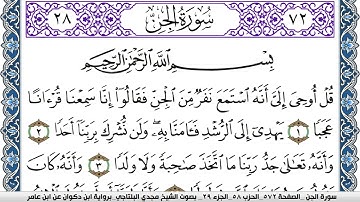 ٧٢ سُورَةُ الجِنّ ٢٨
بِسْمِ ٱللَّهِ ٱلرَّحْمَٰنِ ٱلرَّحِيمِ
قُلْ أُوحِيَ إِلَيَّ أَنَّهُ ٱسْتَمَعَ نَفَرٌ مِّنَ ٱلْجِنِّ فَقَالُوٓا۟ إِنَّا سَمِعْنَا قُرْءَانًا
عَجَبًا ١ يَهْدِىٓ إِلَى ٱلرُّشْدِ فَـَٔامَنَّا بِهِۦ وَلَن نُّشْرِكَ بِرَبِّنَآ أَحَدًا ٢
وَأَنَّهُۥ تَعَٰلَىٰ جَدُّ رَبِّنَا مَا ٱتَّخَذَ صَٰحِبَةً وَلَا وَلَدًا ٣ وَأَنَّهُۥ كَانَ
سورة الجن _ الصفحة ٥٧٢_ الحزب ٥٨_ الجزء ٢٩ _ بصوت الشيخ مجدي البلتاجي برواية ابن ذكوان عن ابن عامر